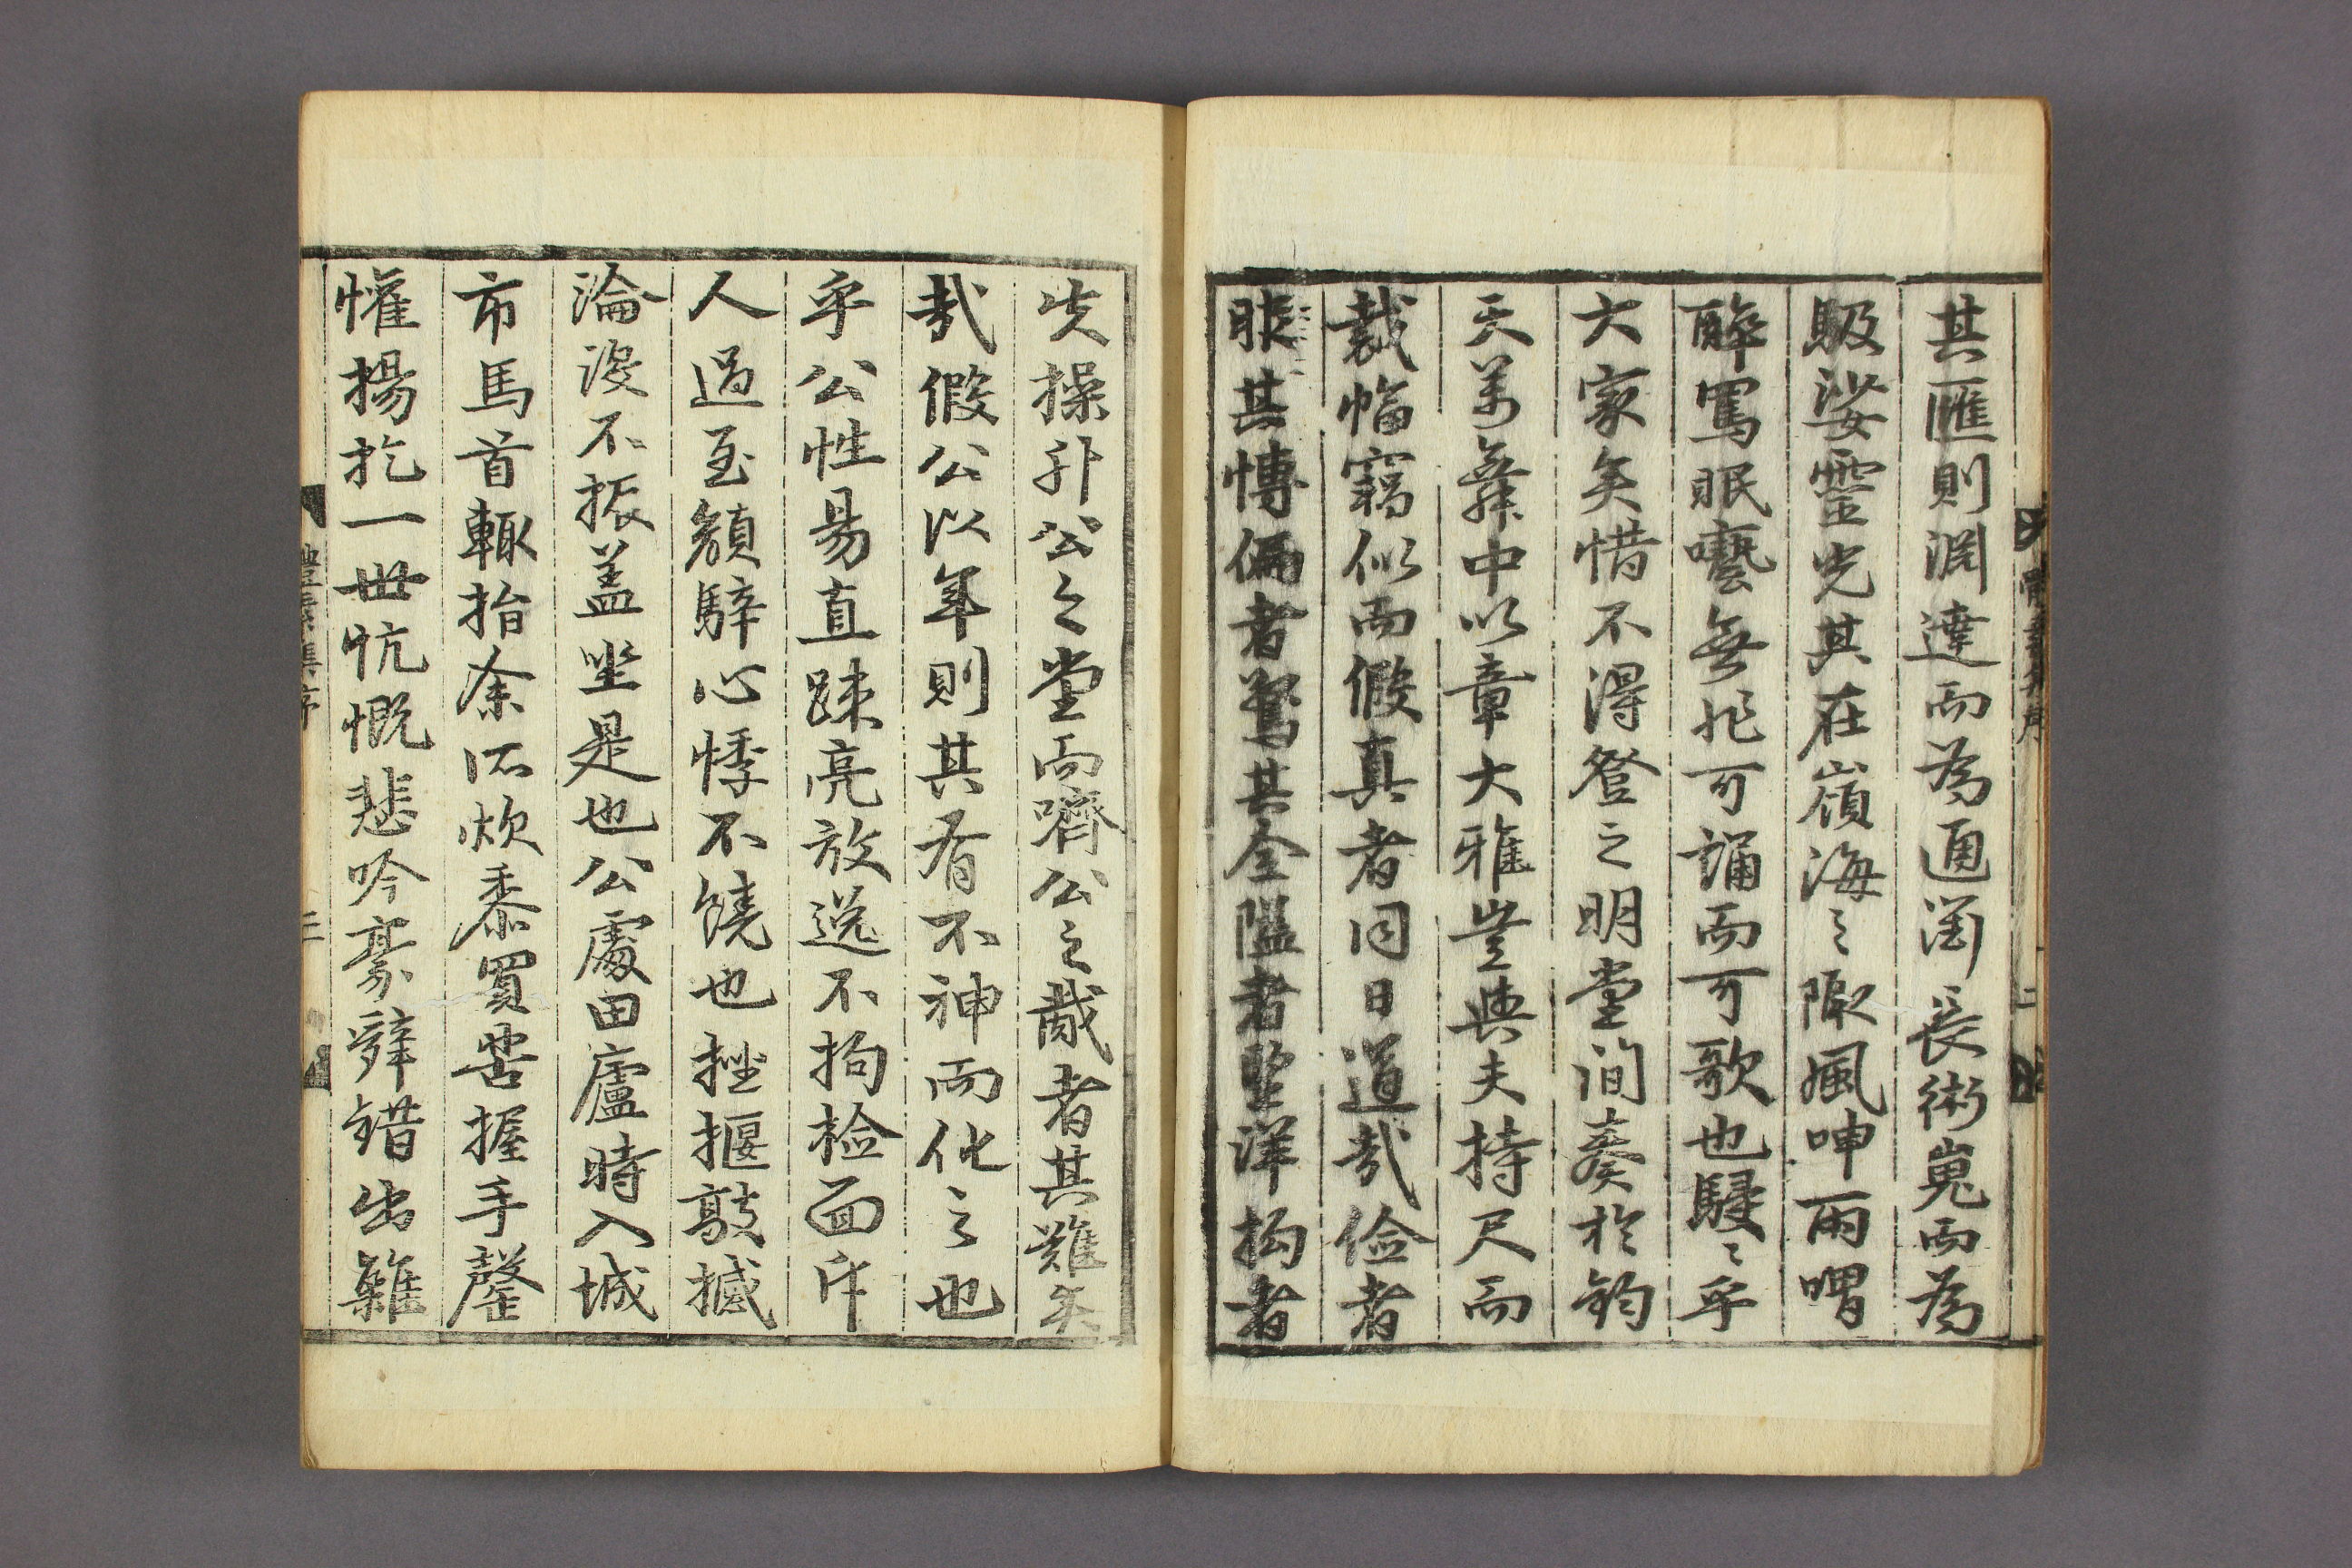 其匯則淵達而為通澜長術嵬而為
馺娑靈光其在嶺海之陬風呻雨喟
醉罵眠囈無非可誦而可歌也駸〻乎
大家矣惜不得登之明堂間奏於鈞
天萬舞中以章大雅豈與夫持尺而
裁幅竊似而假真者同日道哉儉者
眠其博偭者鶩其全隘者望洋拘者
失操升公之堂而嚌公之胾者其難矣
哉假公以年則其有不神而化之也
乎公性易直疎亮放逸不拘檢面斥
人過至頳辭心悸不饒也挫揠敲撼
淪沒不振盖坐是也公處田廬時入城
市馬首輙指余所炊黍買醤握手罄
懽揚扢一世忼慨悲吟豪辭錯出雖
體素集序
二
體素集序
三